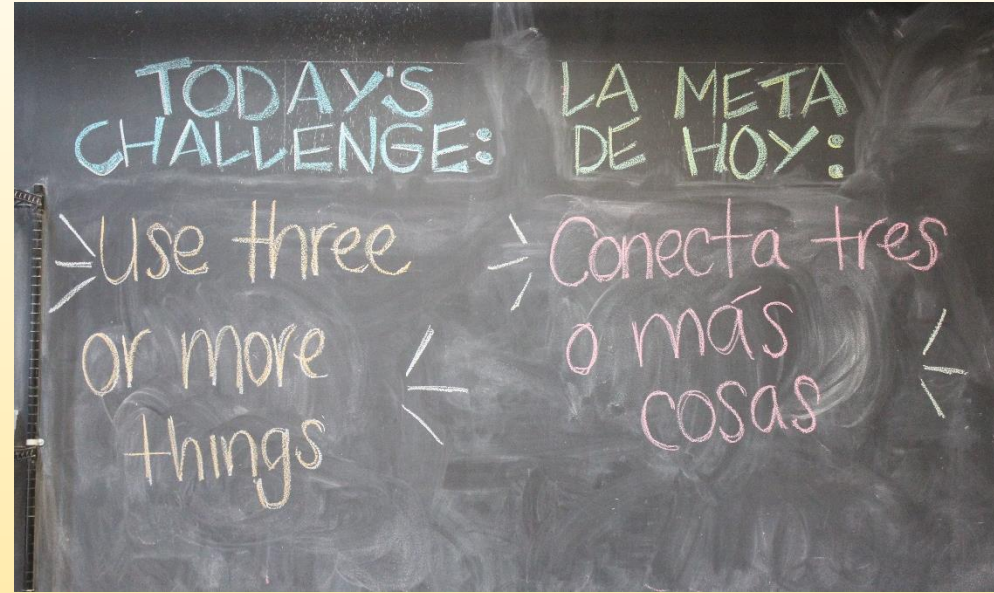 TODAY'S
CHALLENGE:
Use three
or more
things
LA META
DE HOY:
Conecta tres
o más
cosas